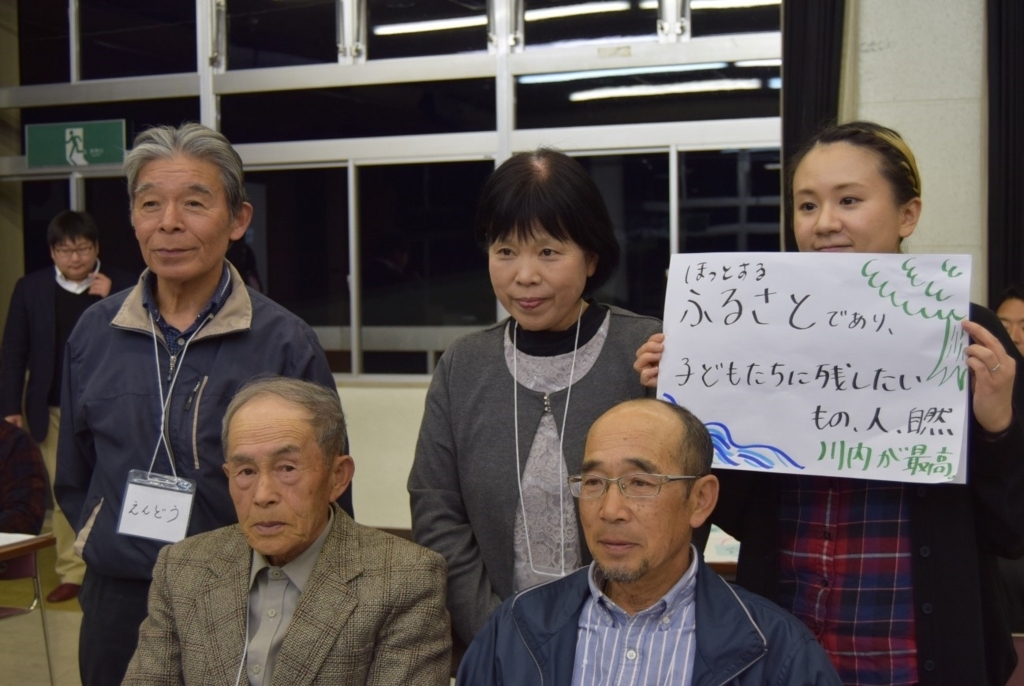 ほっとする
ふるさとであり、
子どもたちに残したい
もの、人、自然
川内が最高
えんどう